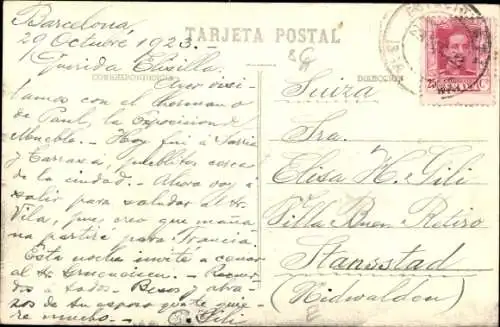 Barcelona,
29 Octubre 1923.-
TARJETA POSTAL
Querida Elisilla:
CORRESPONDENCIA
DIRECCION
Ayer visi-
tamos con el hermano
de Paul, la exposicion de
Mueble.- Hoy fui á Sarria
y Tarrasa, pueblitos cerca
de la ciudad.- Ahora voy á
salir para saludar al Sr.
Vila, pues creo que maña-
na partiré para Francia.
Esta noche invite a cenar
al Sr.
Recuer-
dos a todos.- Besos y abra-
zos de tu esposo que te quie-
re mucho.-
E. Gili
Suiza
Sra.
Elisa H. Gili
Villa Buen Retiro
Stansstad
(Nidwalden)
25 Cs